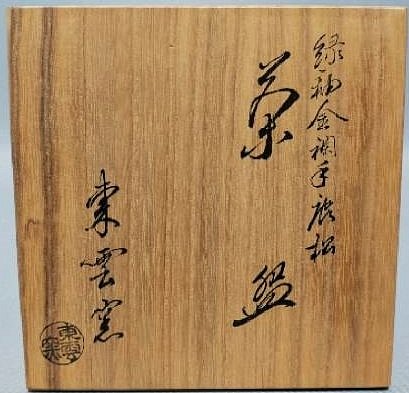 緑釉金襴手老松
茶盌
東雲窯
東雲窯